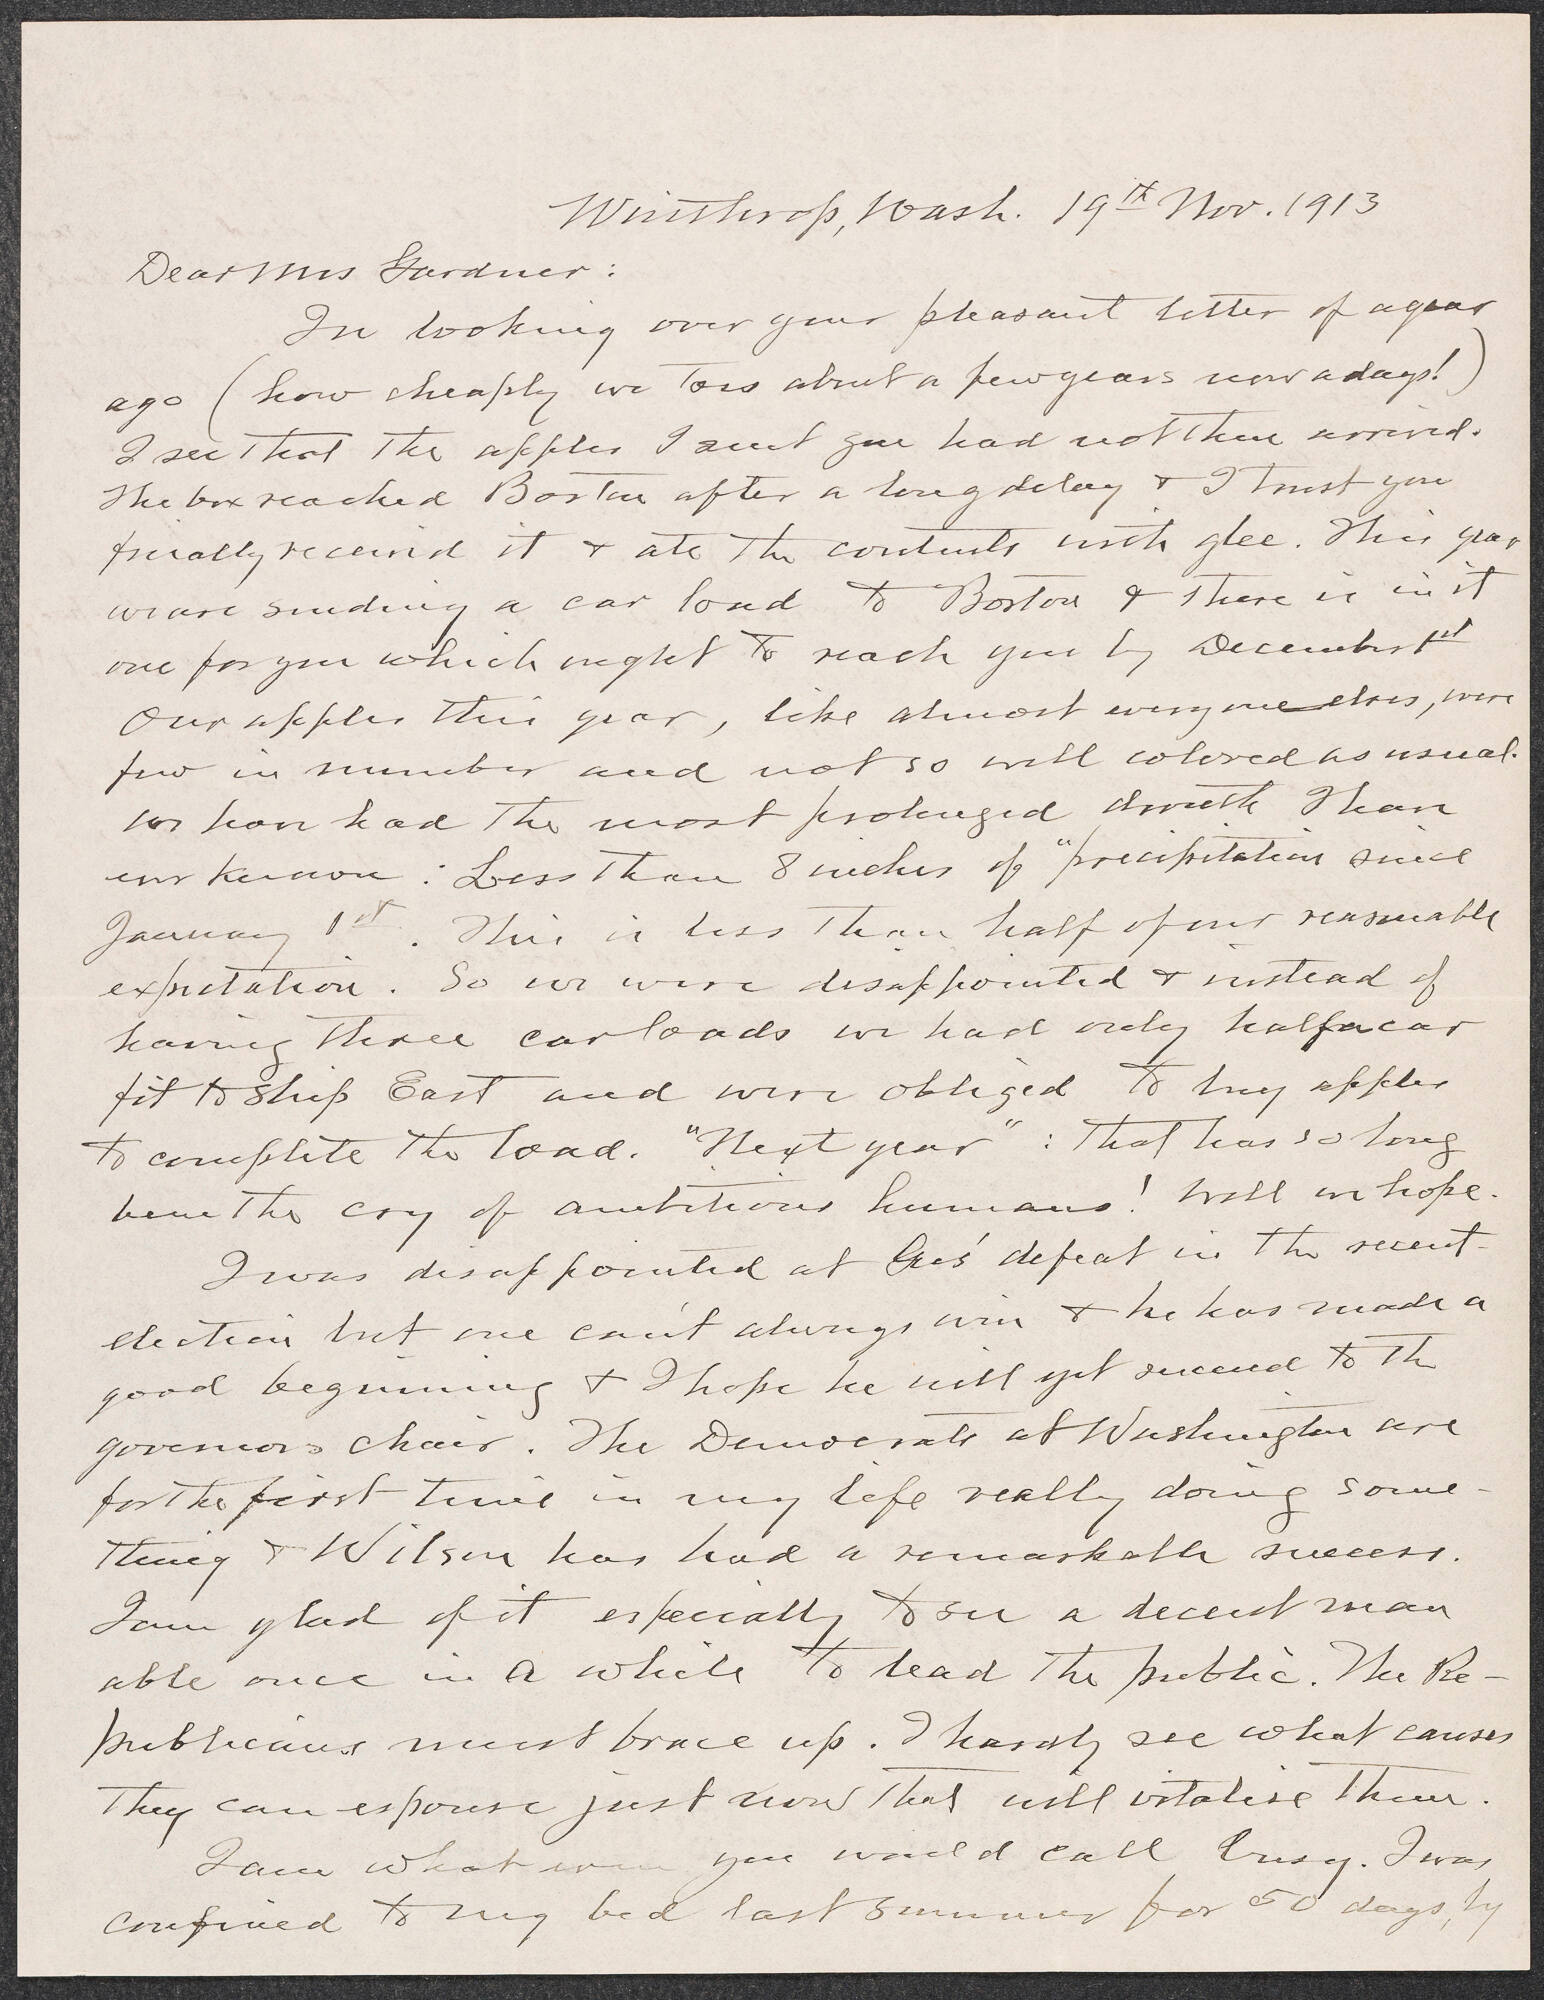 Winthrop, Wash. 19th Nov. 1913
Dear Mrs Gardner:
In looking over your pleasant letter of a year
ago (how cheaply we toss about a few years nowadays!)
I see that the apples I sent you had not then arrived.
The box reached Boston after a long delay & I trust you
finally received it & ate the contents with glee. This year
we are sending a car load to Boston & there is in it
one for you which ought to reach you by December 1st
Our apples this year, like almost everyone elses, were
few in number and not so well colored as usual.
We have had the most prolonged drouth I have
ever known: Less than 8 inches of "precipitation since
January 1st. This is less than half of our reasonable
expectation. So we were disappointed & instead of
having three carloads we had only half a car
fit to ship East and were obliged to buy apples
to complete the load. "Next year": that has so long
been the cry of ambitious humans! Well we hope.
I was disappointed at Gus' defeat in the recent
election but one can't always win & he has made a
good beginning & I hope he will yet succeed to the
governors chair. The Democrats at Washington are
for the first time in my life really doing some-
thing & Wilson has had a remarkable success.
I am glad of it especially to see a decent man
able once in a while to lead the public. The Re-
publicans must brace up. I hardly see what causes
they can espouse just now that will vitalise them.
I am what even you would call busy. I was
confined to my bed last summer for 50 days, by